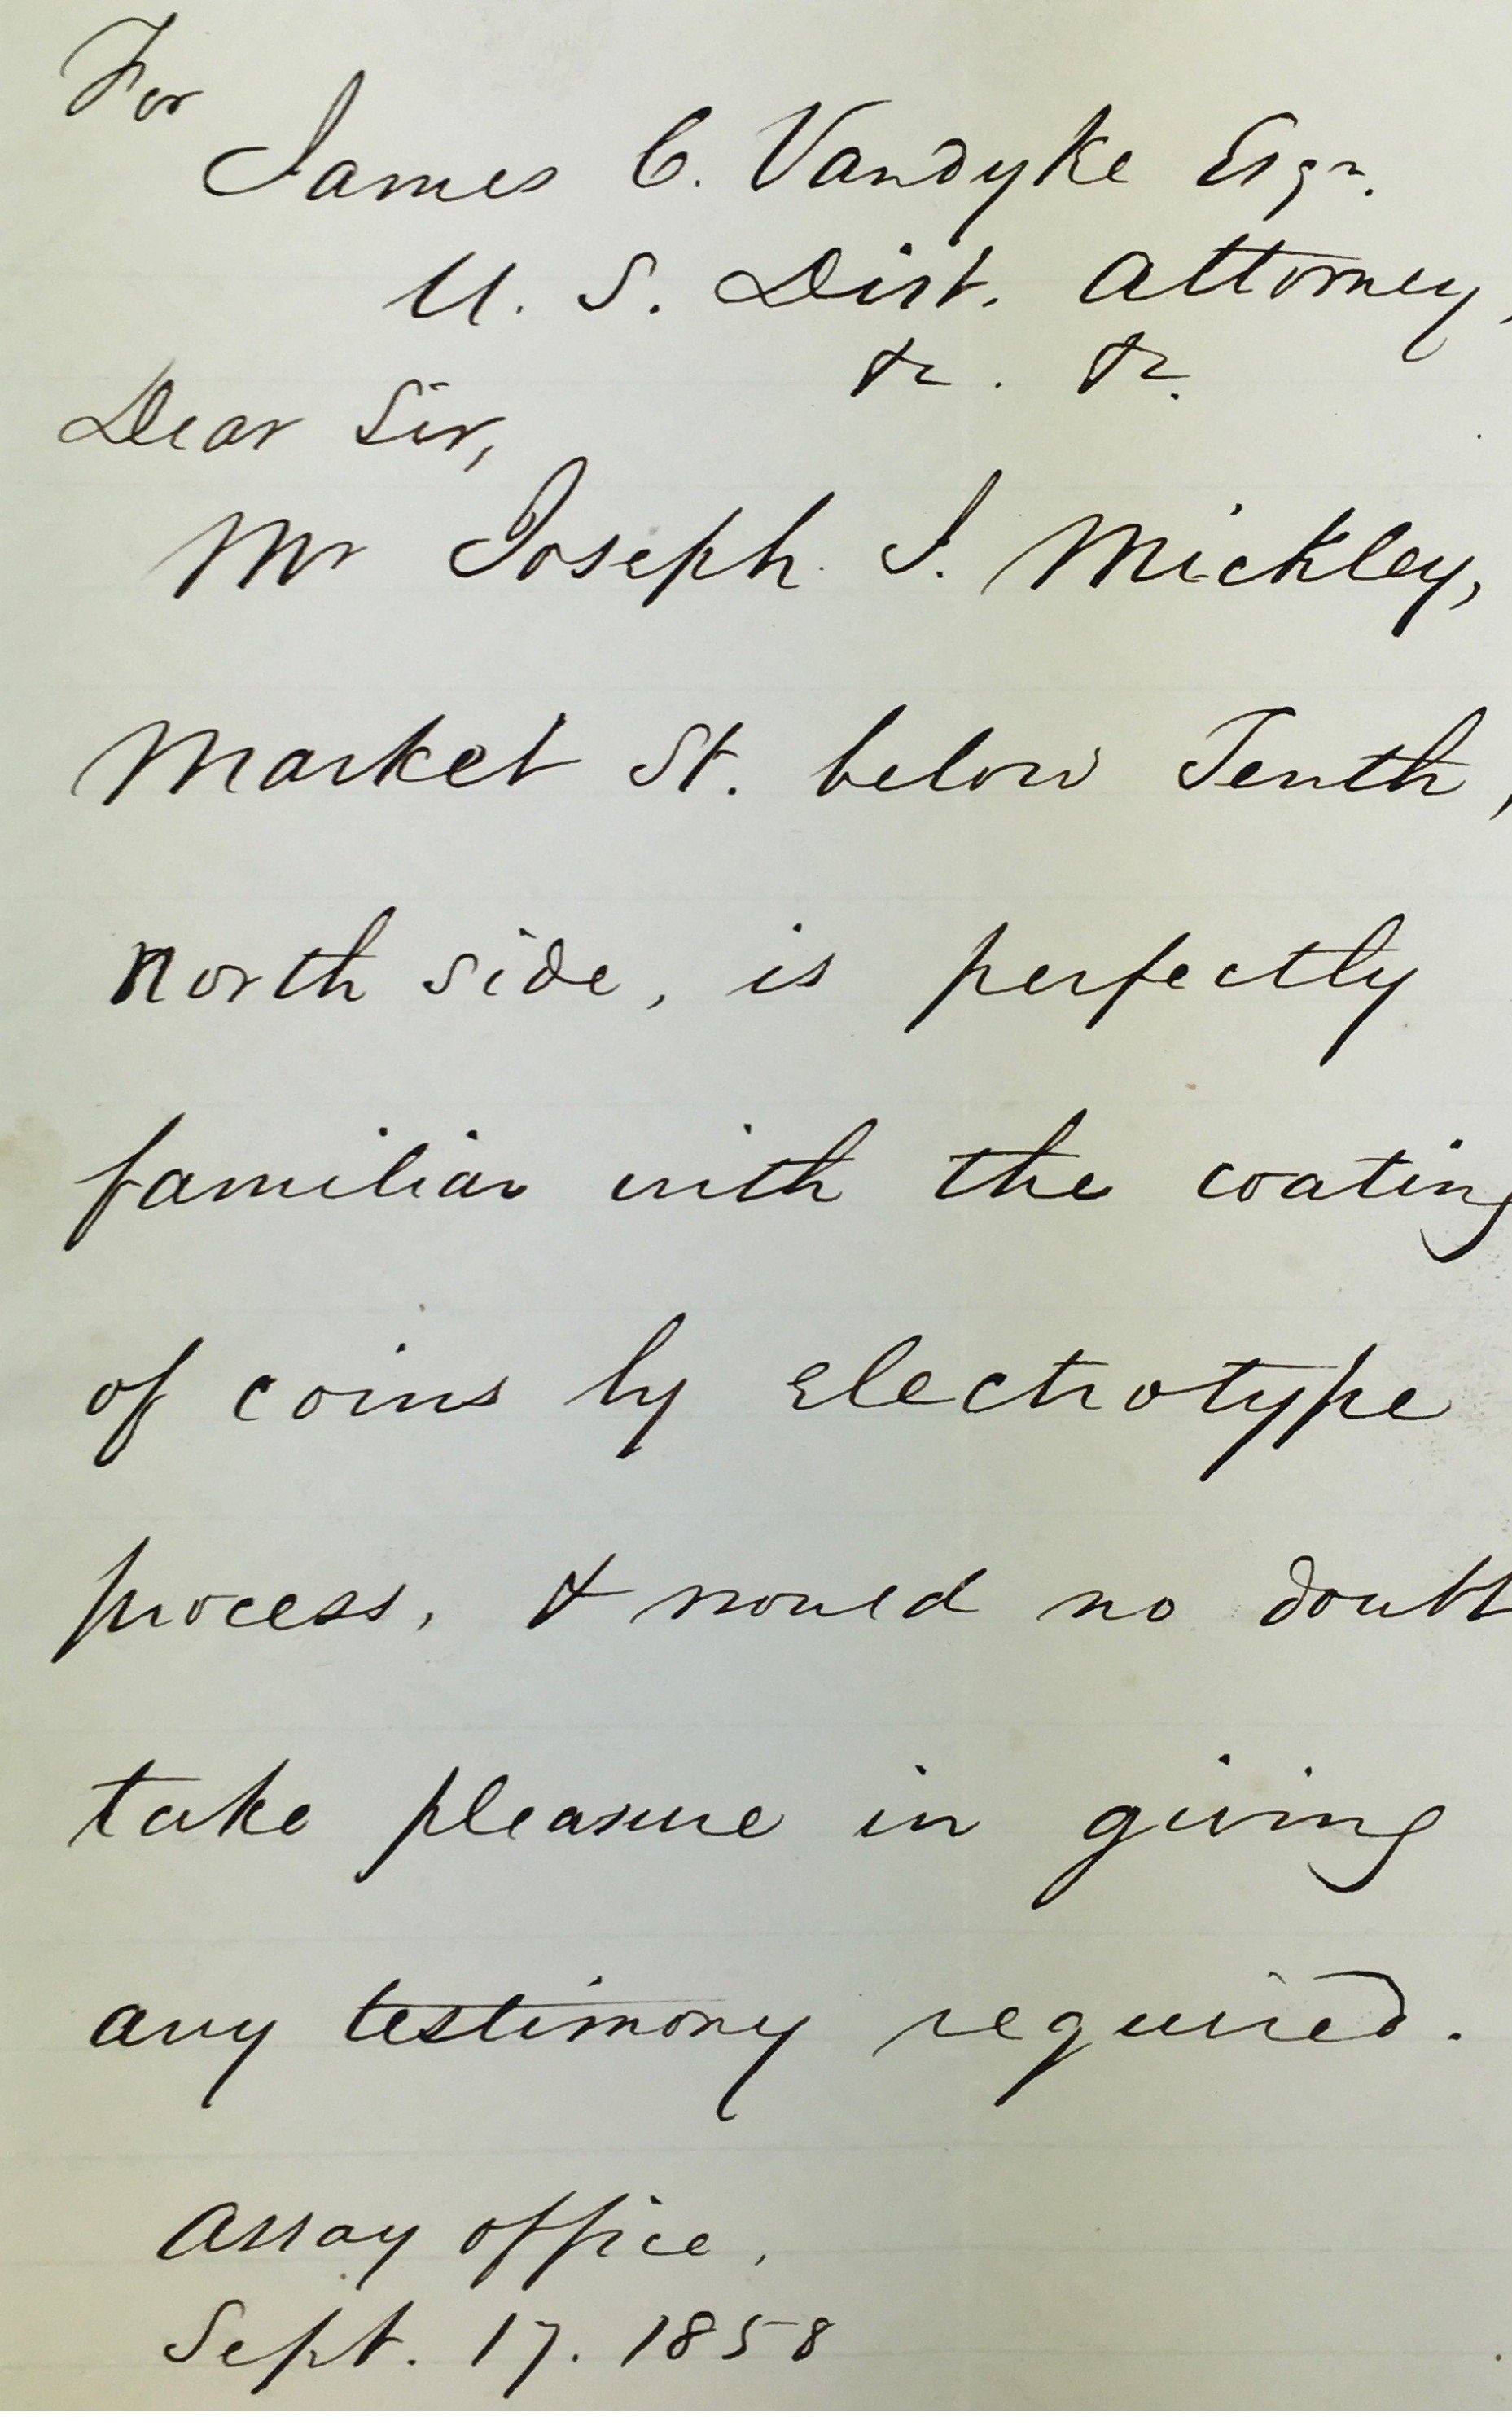 For
James C. Vandyke Esqr.
U. S. Dist. Attorney,
&c. &c.
Dear Sir,
Mr Joseph J. Mickley,
Market St. below Tenth,
north side, is perfectly
familiar with the coating
of coins by electrotype
process, & would no doubt
take pleasure in giving
any testimony required.
Assay office,
Sept. 17. 1858